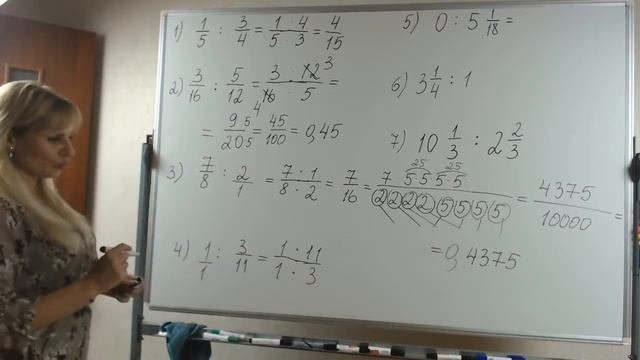 1) 1/5 : 3/4 = 1·4/5·3 = 4/15
2) 3/16 : 5/12 = 3·12 3/16 4·5 =
= 9 5/20 5 = 45/100 = 0,45
3) 7/8 : 2/1 = 7·1/8·2 = 7/16 = 7·5·5·5·5 25 25/2 2 2 2 5 5 5 5 = 4375/10000 =
= 0,4375
4) 1/1 : 3/11 = 1·11/1·3
5) 0 : 5 1/18 =
6) 3 1/4 : 1
7) 10 1/3 : 2 2/3